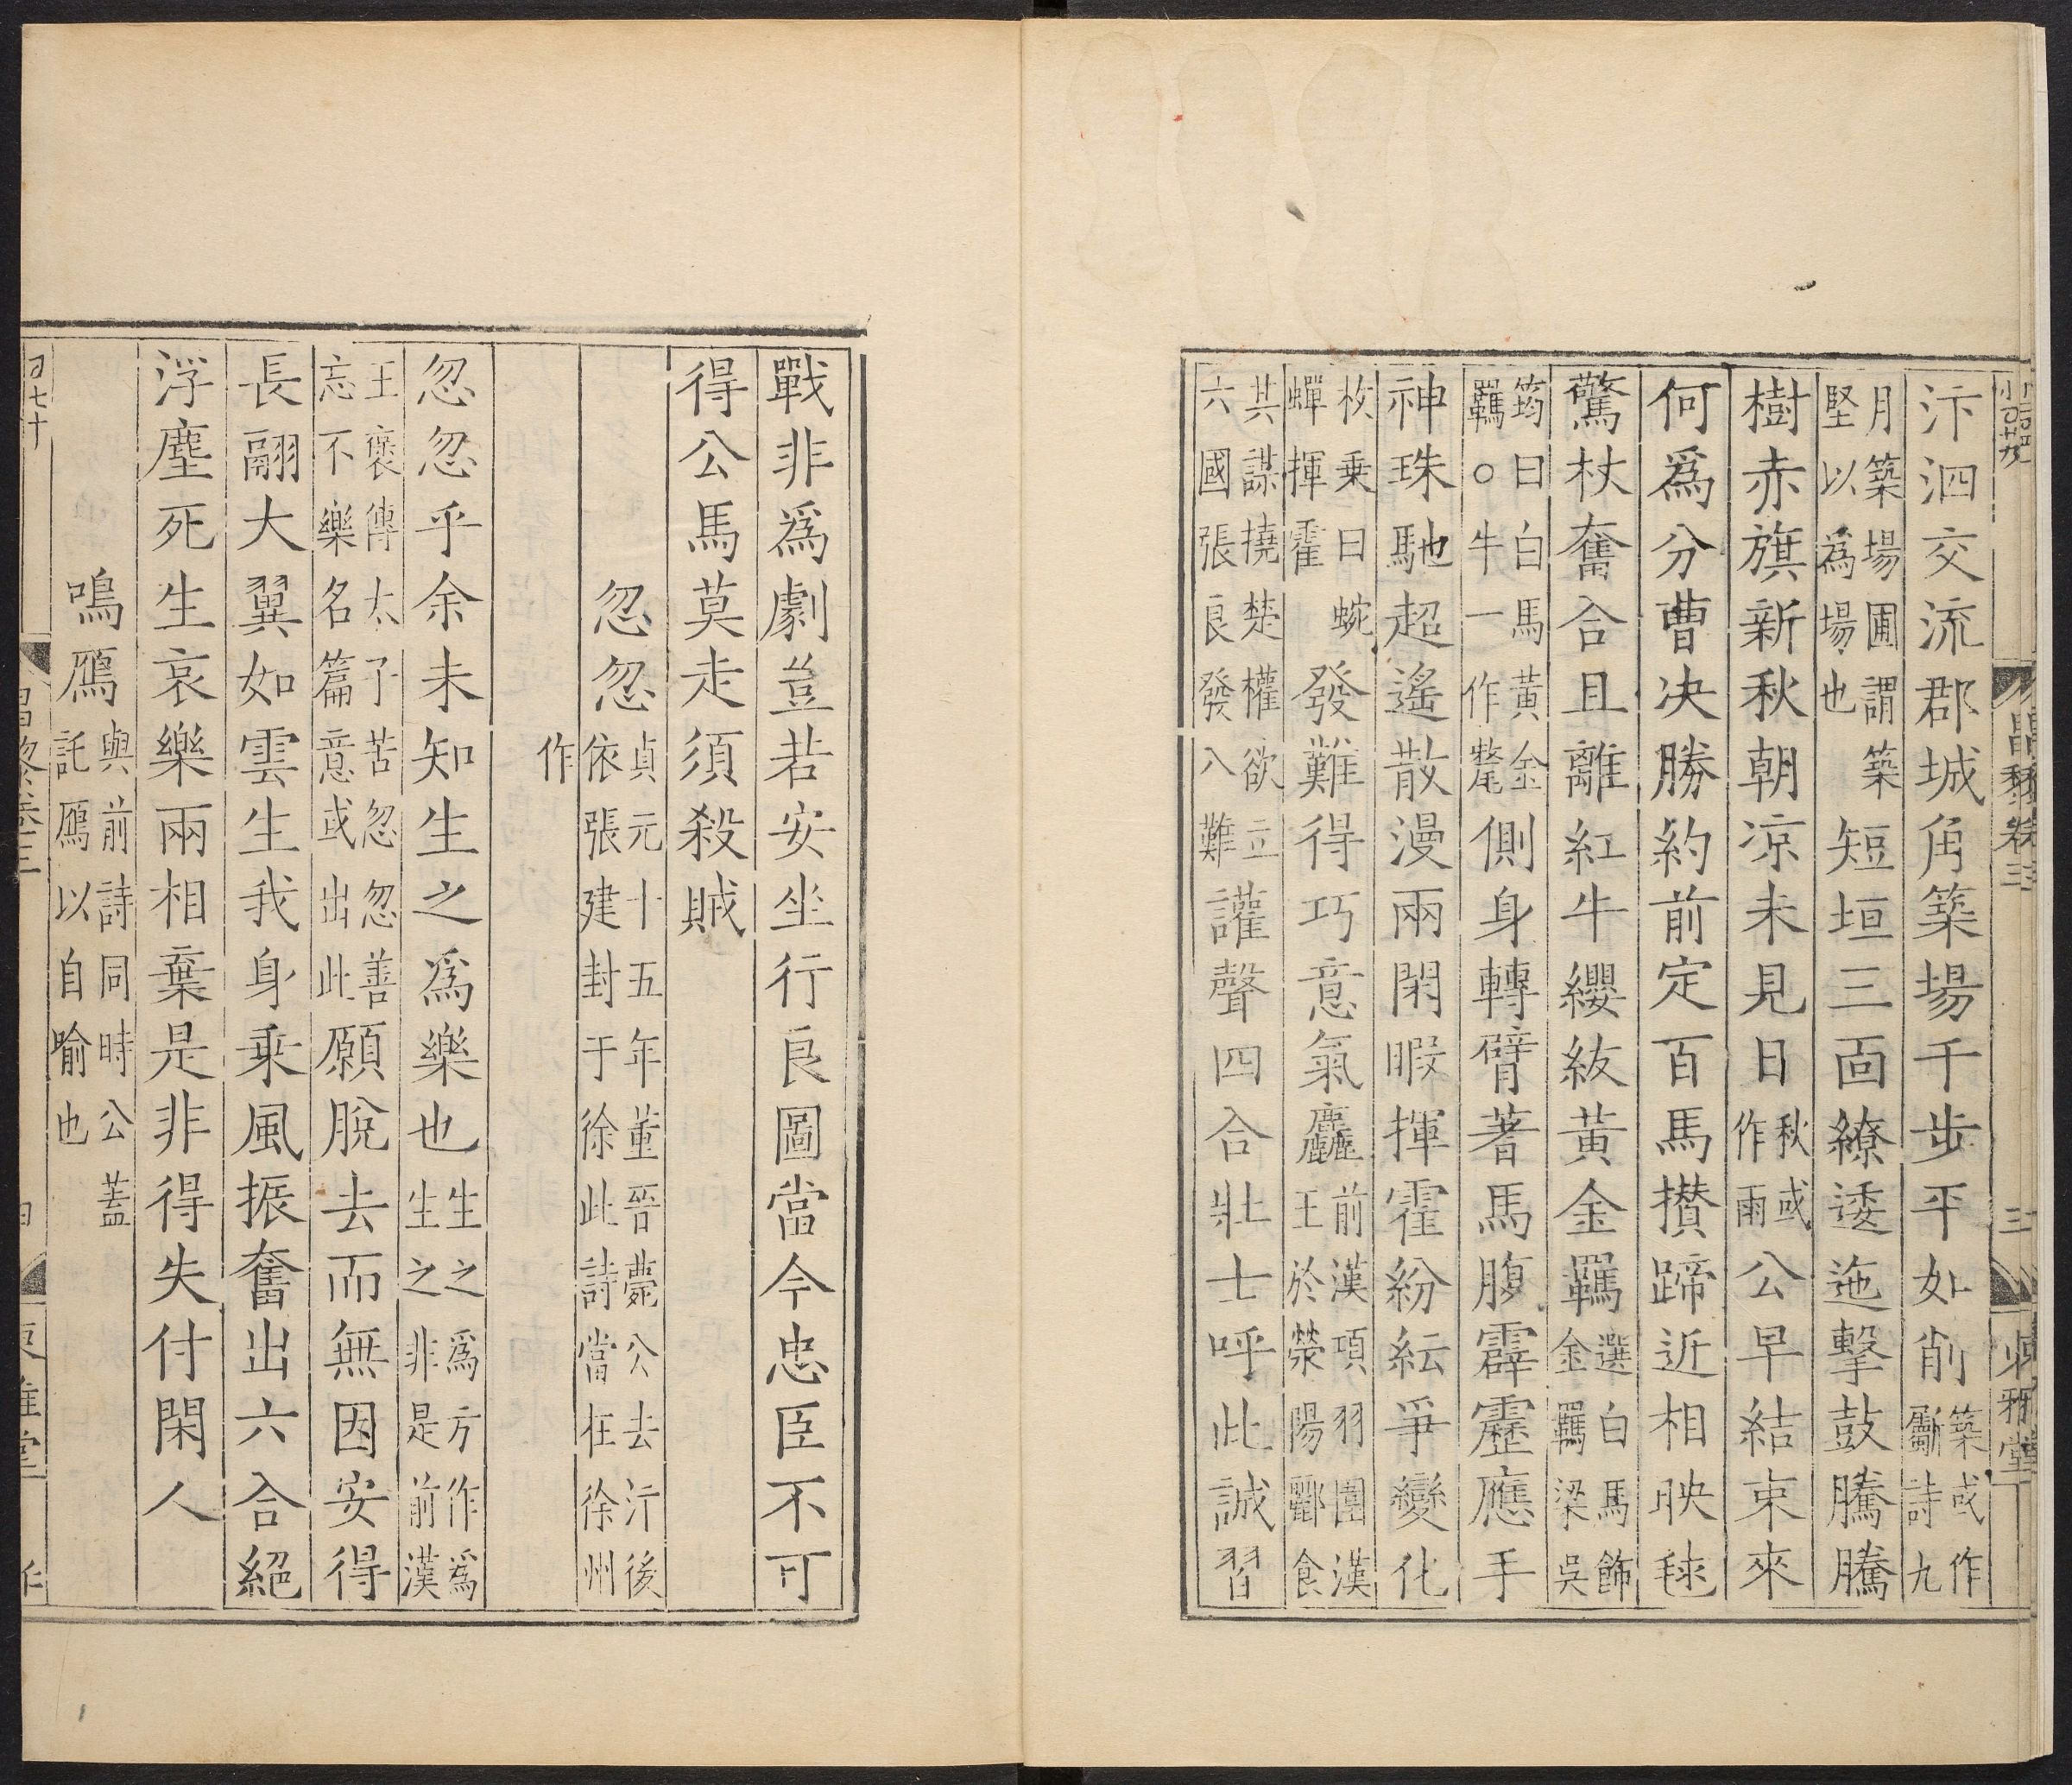 汴泗交流郡城角築場千步平如削築或作斸詩九
月築場圃謂築堅以為場也短垣三面繚逶迤擊鼓騰騰
樹赤旗新秋朝凉未見日秋或作雨公早結束來
何爲分曹决勝約前定百馬攅蹄近相映毬
驚杖奮合且離紅牛纓紱黃金羈選白馬飾金羈梁吳
筠曰白馬黃金羈○牛一作氂側身轉臂著馬腹霹靂應手
神珠馳超遙散漫兩閑暇揮霍紛紜爭變化
枚乗曰蜿蟬揮霍發難得巧意氣麤前漢項羽圍漢王於滎陽酈食
其謀撓楚權欲立六國張良發八難讙聲四合壯士呼此誠習
戰非爲劇豈若安坐行良圖當今忠臣不可
得公馬莫走須殺賊
忽忽貞元十五年董晉薨公去汴後依張建封于徐此詩當在徐州
作
忽忽乎余未知生之爲樂也生之爲方作爲生之非是前漢
王襃傳太子苦忽忽善忘不樂名篇意或出此願脫去而無因安得
長翮大翼如雲生我身乘風振奮出六合絕
浮塵死生哀樂兩相棄是非得失付閑人
鳴鴈與前詩同時公蓋託鴈以自喻也
昌黎卷三
三
東雅堂